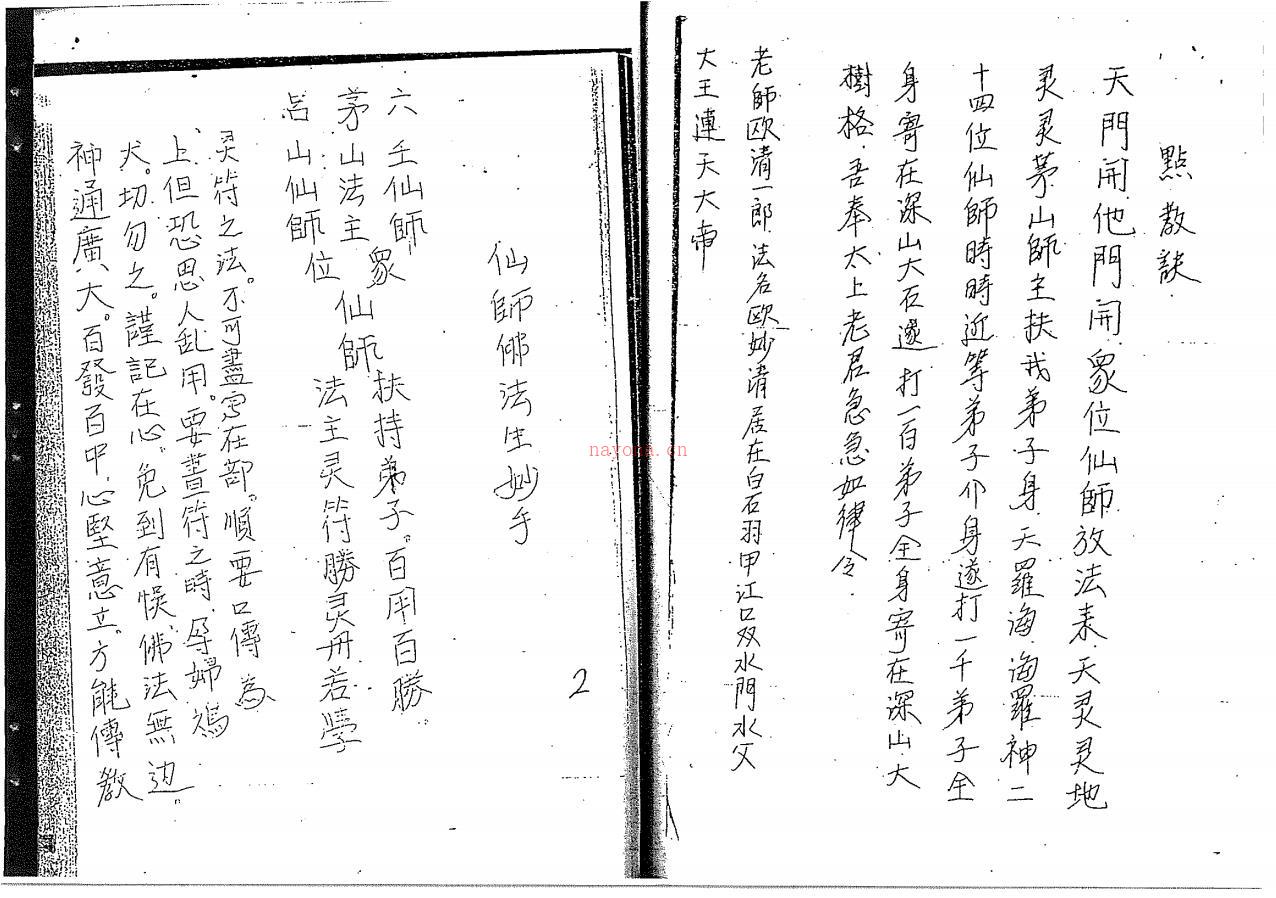 點教訣
天門開他門開眾位仙師放法来天灵灵地
灵灵茅山師主扶我弟子身天羅海海羅神二
十四位仙師時時近等弟子介身遂打一千弟子全
身寄在深山大石遂打一百弟子全身寄在深山大
樹格吾奉太上老君急急如律令
老師欧清一郎法名欧妙清居在白石羽甲江口双水門水父
大王連天大帝
仙師佛法生妙手
六壬仙師 扶持弟子。百用百勝。
茅山法主 眾仙師位 法主灵符勝灵丹若學
吕山仙師
灵符之法。不可盡写在部。順要口傳為
上但恐思人乱用。要畫符之時。孕婦
犬。切勿之。謹記在心。免到有悞。佛法無边。
神通廣大。百發百中。心堅意立。方能傳教
2
nayona.cn